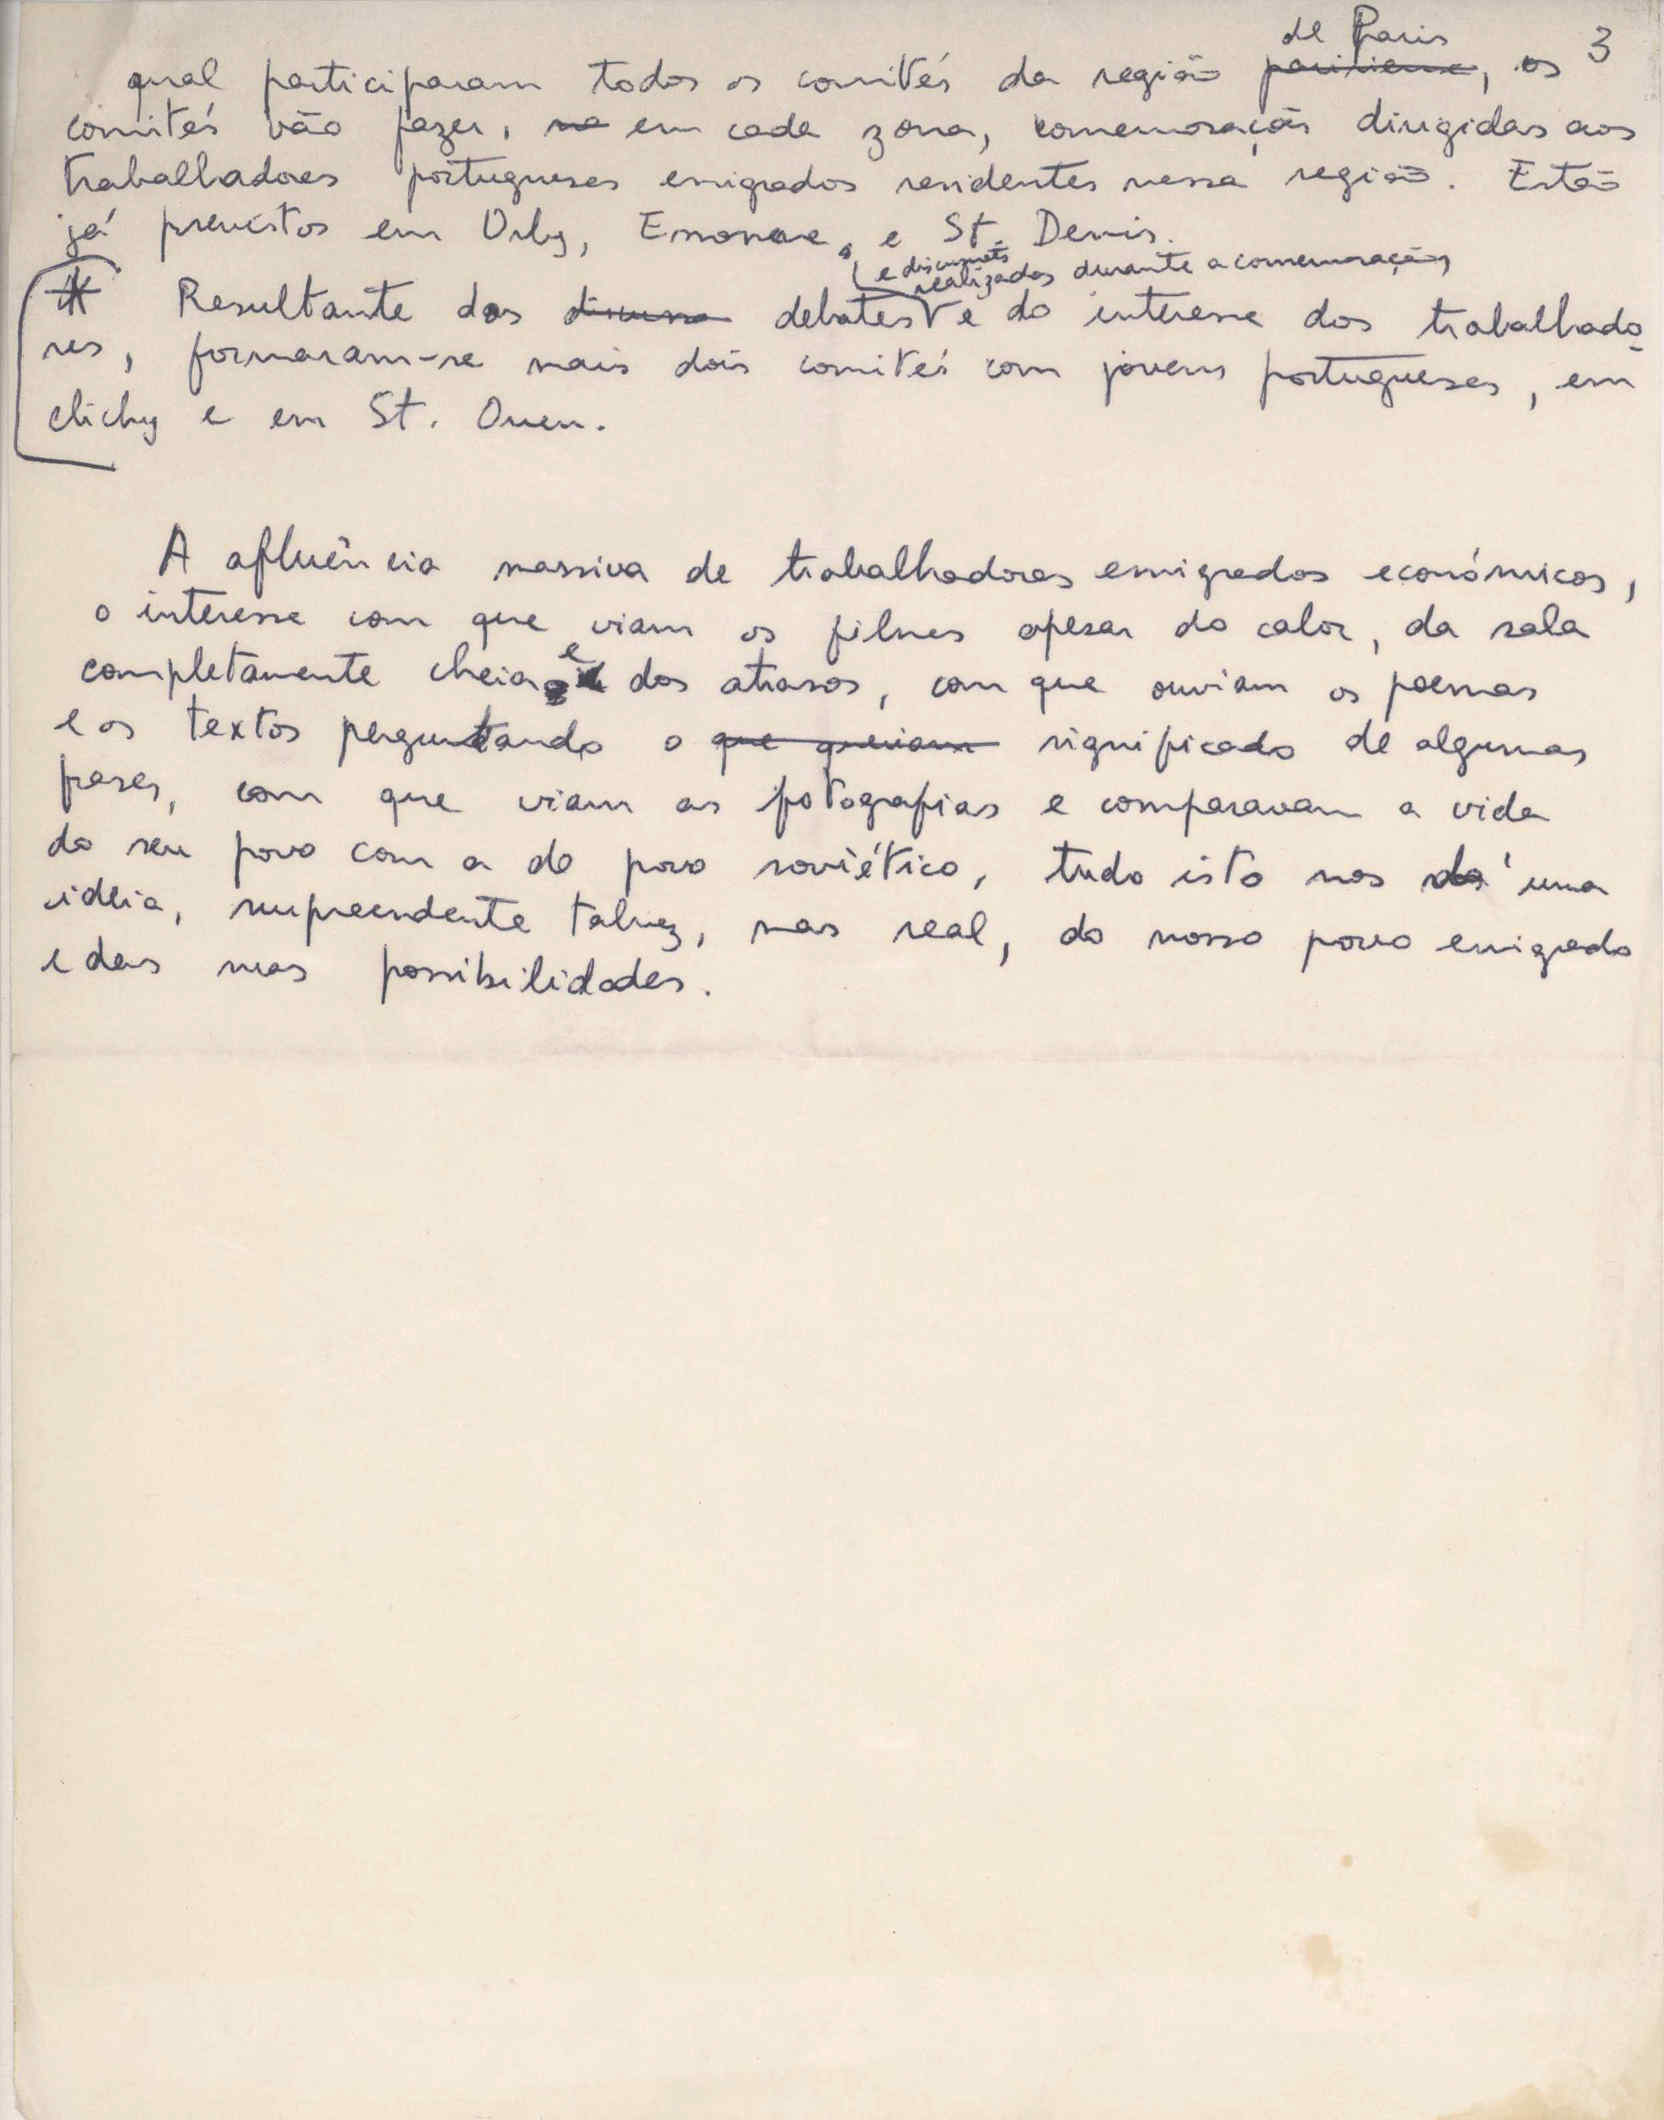 3
de Paris
qual participaram todos os comités da região parisiense, os
comités vão fazer, na em cada zona, comemorações dirigidas aos
trabalhadores portugueses emigrados residentes nessa região. Estão
já previstos em Orly, Essonne, e St. Denis.
e discussões
realizados durante a comemoração
Resultante dos debates e do interesse dos trabalhado-
res, formaram-se mais dois comités com jovens portugueses, em
Clichy e em St. Ouen.
A afluência massiva de trabalhadores emigrados económicos,
o interesse com que viam os filmes apesar do calor, da sala
completamente cheia e dos atrasos, com que ouviam os poemas
e os textos perguntando o que queriam significado de algumas
frases, com que viam as fotografias e comparavam a vida
do seu povo com a do povo soviético, tudo isto nos dá uma
ideia, surpreendente talvez, mas real, do nosso povo emigrado
e das suas possibilidades.